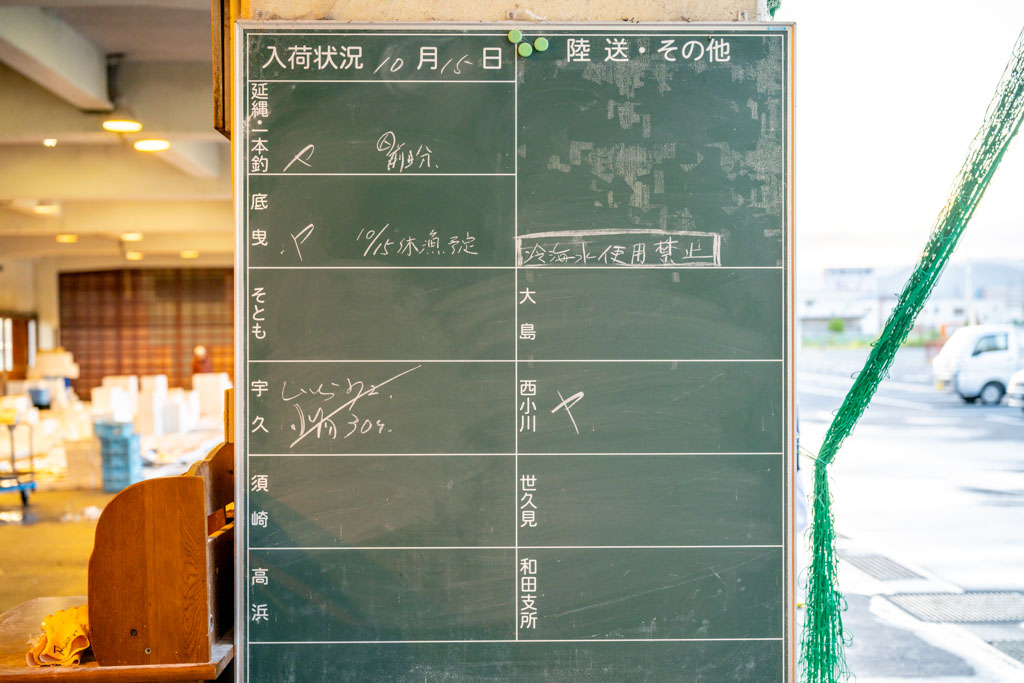 入荷状況 10月15日
陸送・その他
延縄・一本釣
ヤ
底曳
ヤ 10/15休漁予定
冷海水使用禁止
そとも
大島
宇久
30ケ
西小川
ヤ
須崎
世久見
高浜
和田支所